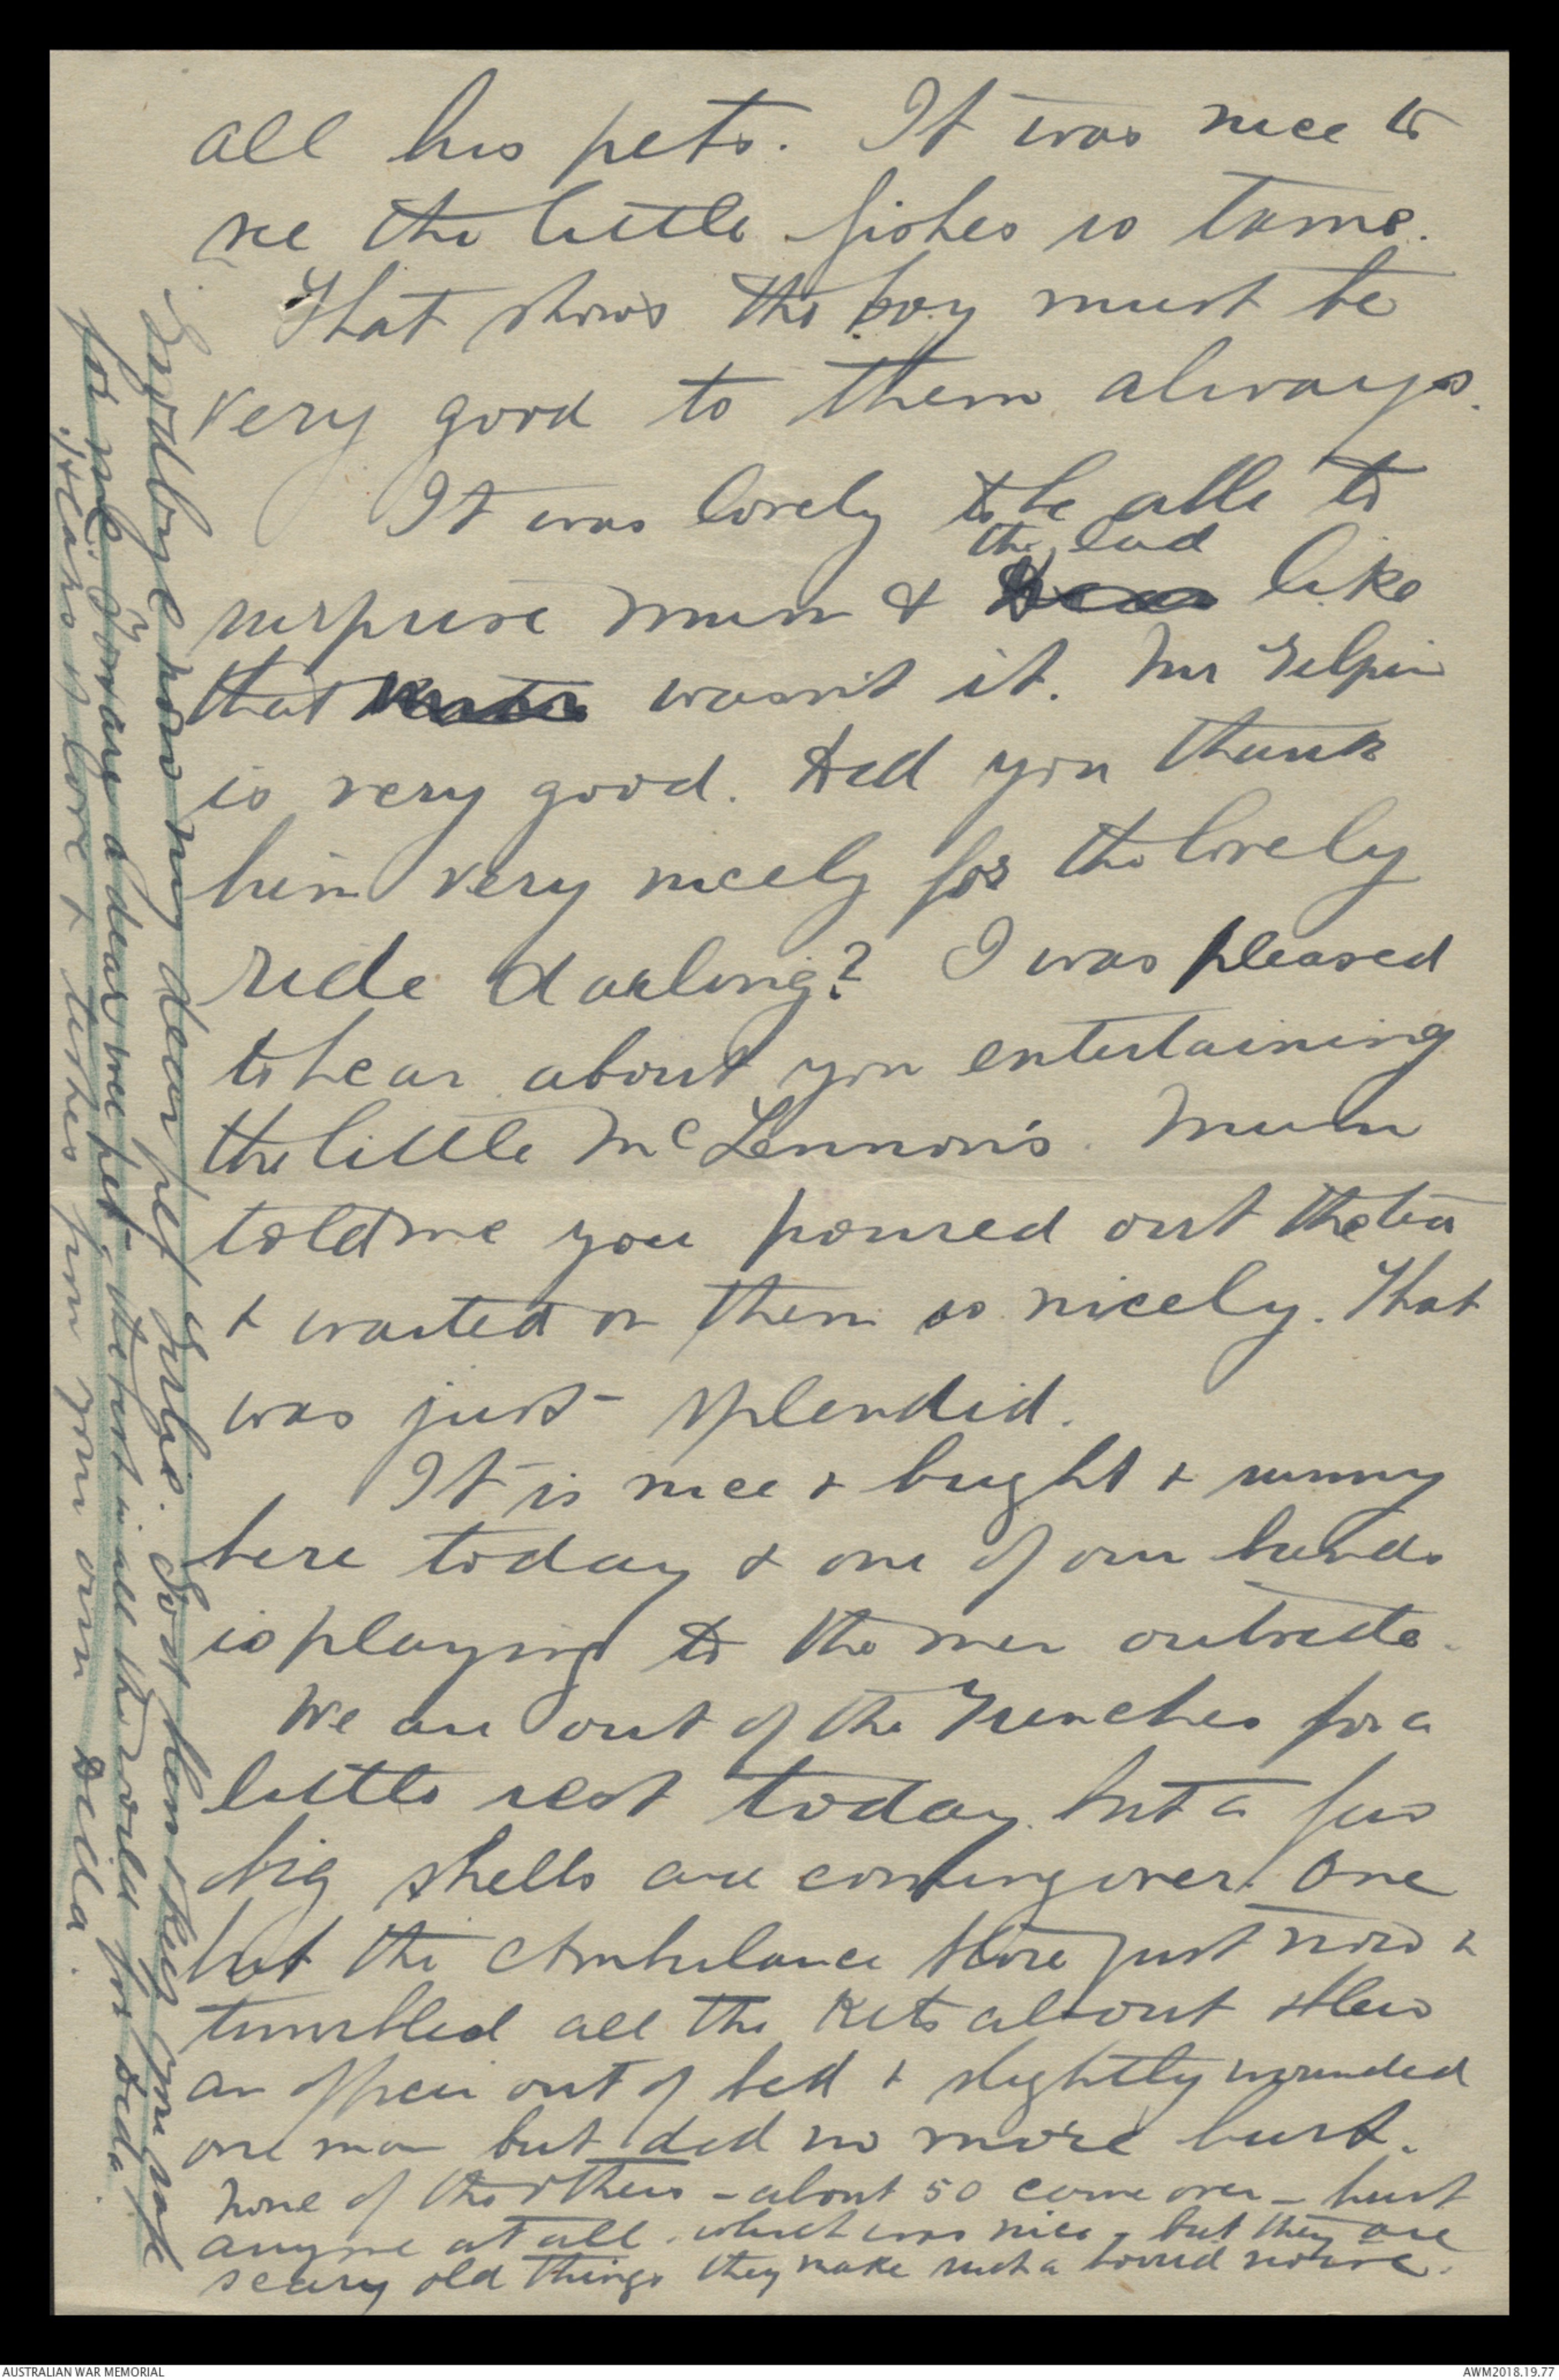 all his pets. It was nice to
see the little fishes so tame.
That shows the boy must be
very good to them always.
It was lovely to be able to
the lad
surprise Mum & like
that wasn't it. Mr Gilpin
is very good. Did you thank
him very nicely for the lovely
ride darling? I was pleased
to hear about you entertaining
the little McLennon's. Mum
told me you poured out the tea
& waited on them so nicely. That
was just splendid.
It is nice & bright & sunny
here today & one of our bands
is playing to the men outside.
We are out of the Trenches for a
little rest today but a few
big shells are coming over. One
hit the Ambulance store just now &
tumbled all the kits about blew
an officer out of bed & slightly wounded
one man but did no more hurt.
None of the others - about 50 came over - hurt
anyone at all which was nice, but they are
scary old things they make such a horrid noise.
Goodbye now my dear pet Girlie. God bless & keep you safe
for me. You are a dear wee pet - the best in all the world for Dida.
Heaps of love & kisses from your own Dida.